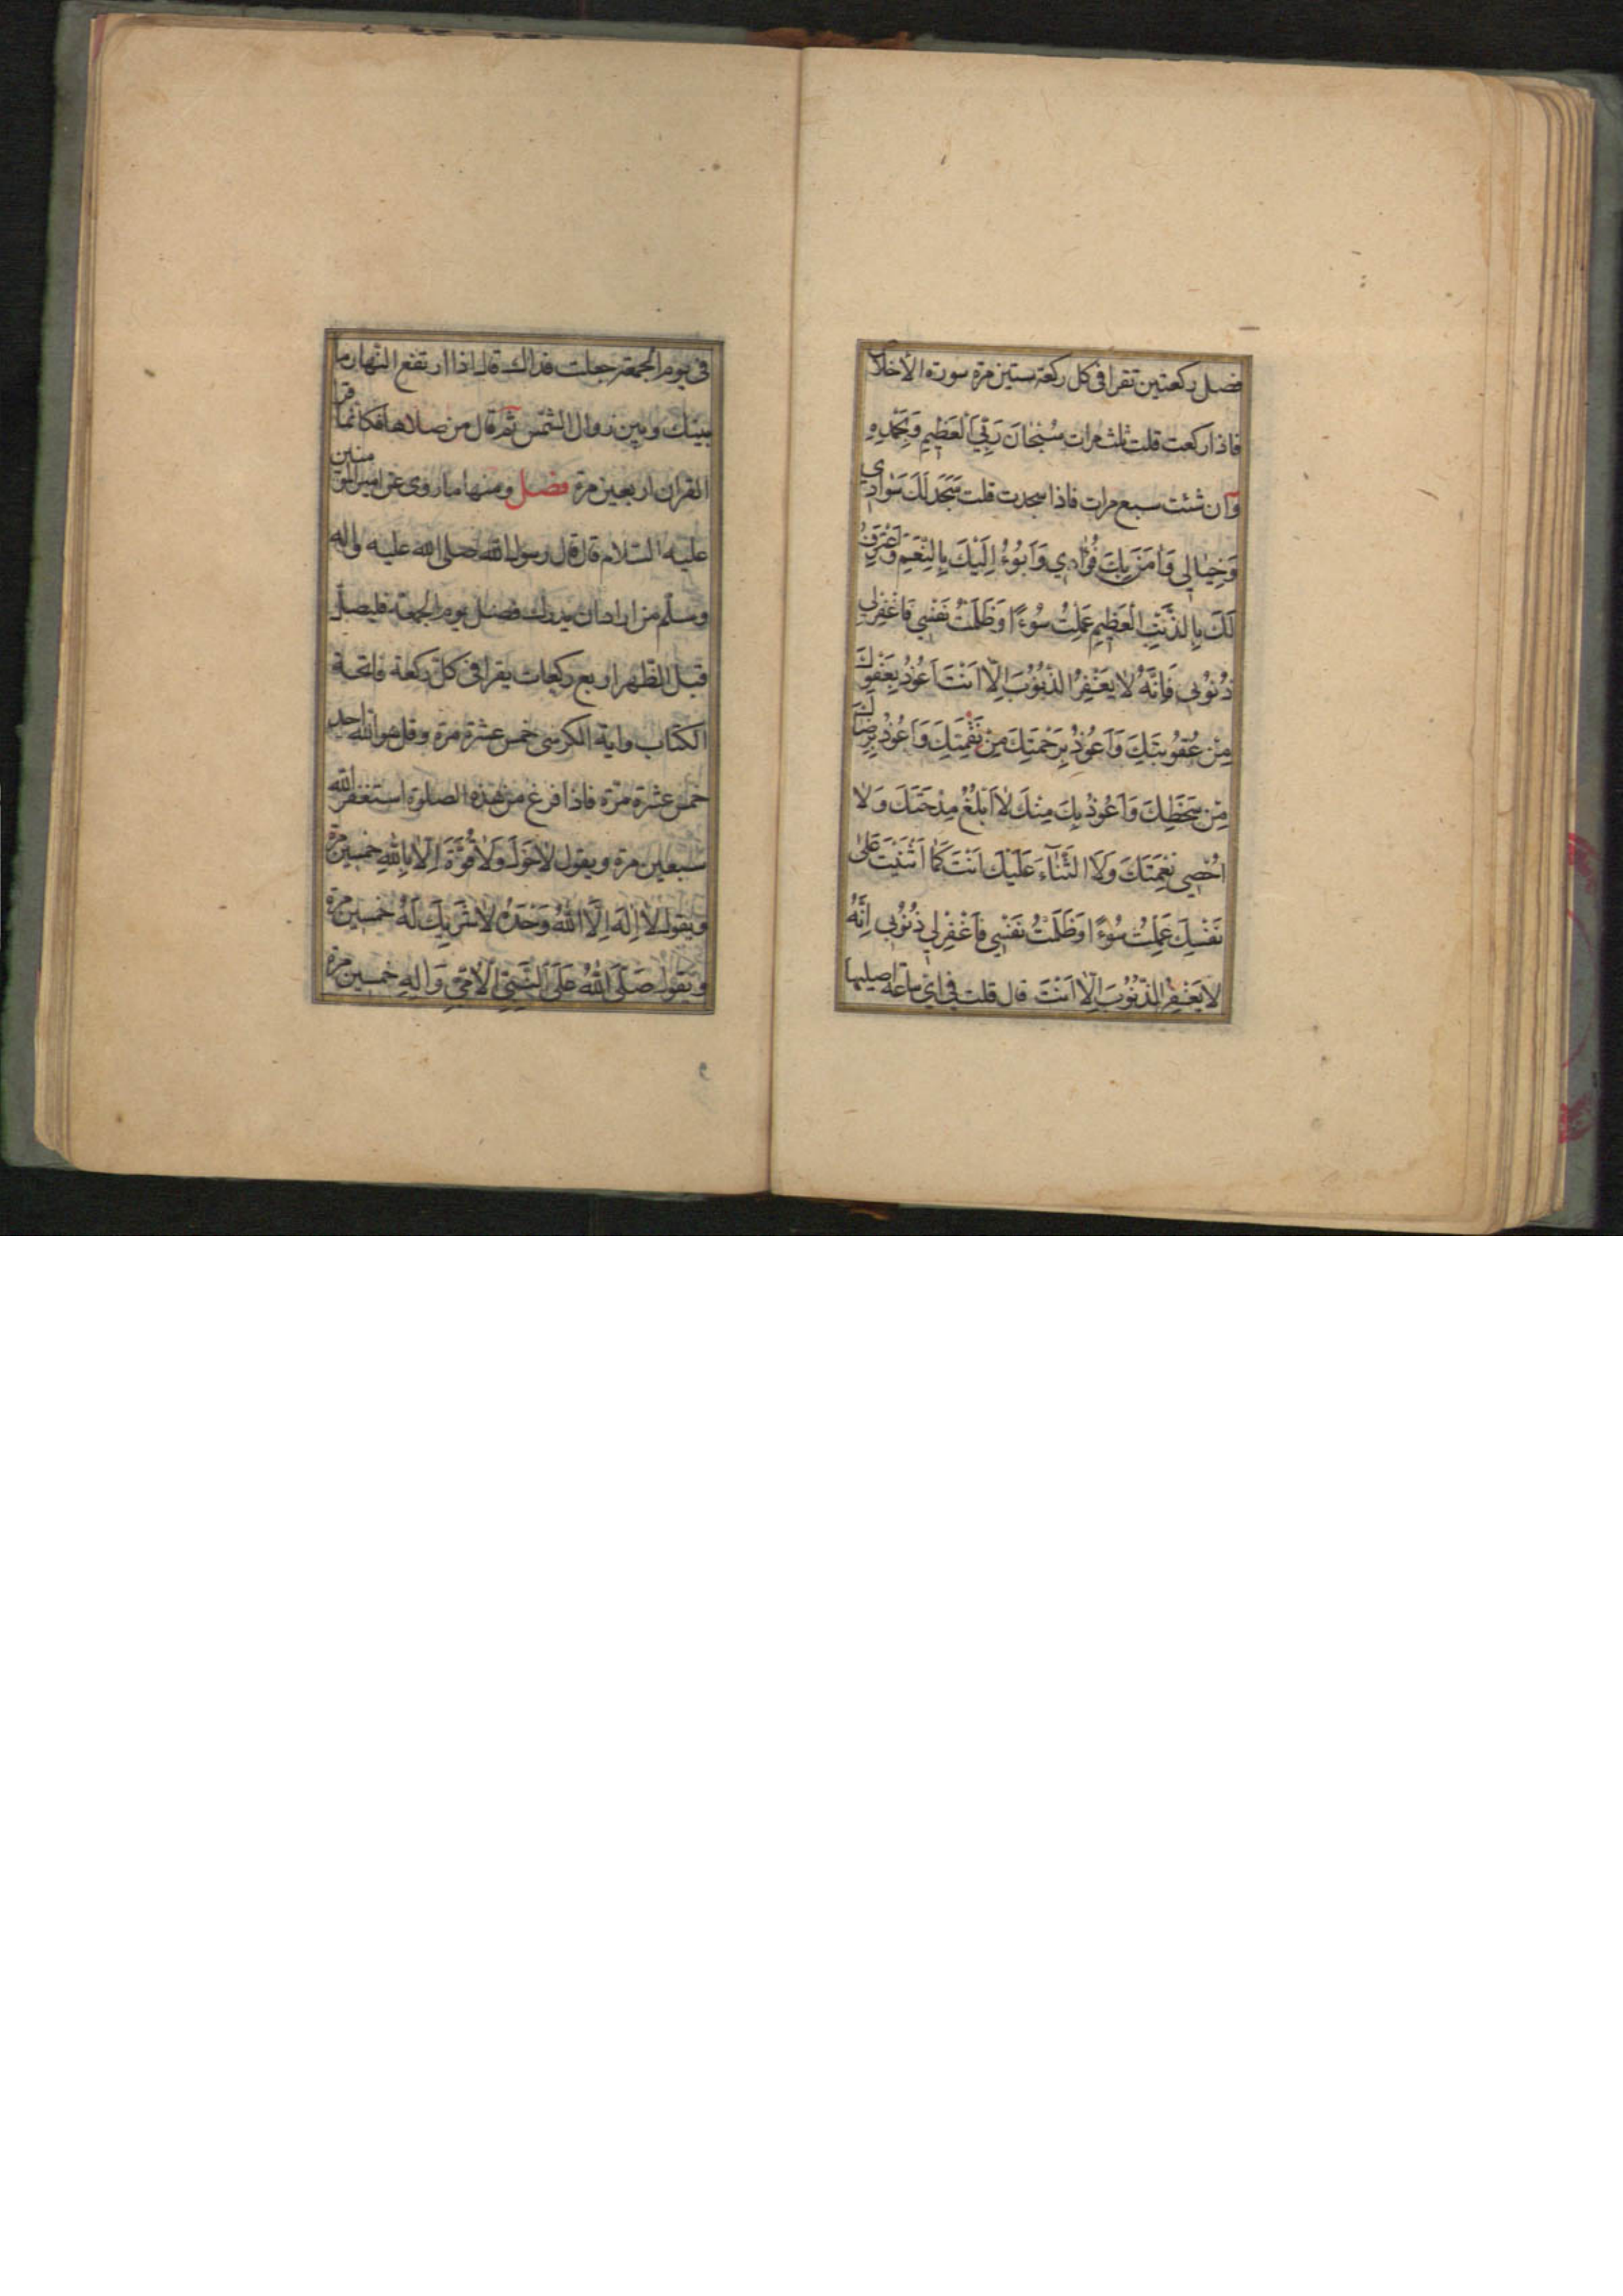 فصل ركعتين تقرا فى كل ركعة ستين مرة سورة الاخلاص
فاذا ركعت قلت ثلث مرات سُبْحَانَ رَبِّيَ الْعَظِيمِ وَبِحَمْدِهِ
وان شئت سبع مرات فاذا سجدت قلت سَجَدَ لَكَ سَوَادِي
وَخِيَالِي وَاٰمَنَ بِكَ فُؤَادِي وَاَبُوءُ اِلَيْكَ بِالنِّعَمِ وَاَعْتَرِفُ
لَكَ بِالذَّنْبِ الْعَظِيمِ عَمِلْتُ سُوءًا وَظَلَمْتُ نَفْسِي فَاغْفِرْ لِي
ذُنُوْبِي فَاِنَّهُ لَا يَغْفِرُ الذُّنُوْبَ اِلَّا اَنْتَ اَعُوْذُ بِعَفْوِكَ
مِنْ عُقُوْبَتِكَ وَاَعُوْذُ بِرَحْمَتِكَ مِنْ نَقْمَتِكَ وَاَعُوْذُ بِرِضَاكَ
مِنْ سَخَطِكَ وَاَعُوْذُ بِكَ مِنْكَ لَا اَبْلُغُ مِدْحَتَكَ وَلَا
اُحْصِي نِعْمَتَكَ وَلَا الثَّنَآءَ عَلَيْكَ اَنْتَ كَمَا اَثْنَيْتَ عَلٰى
نَفْسِكَ عَمِلْتُ سُوْءًا وَظَلَمْتُ نَفْسِي فَاغْفِرْ لِي ذُنُوْبِي اِنَّهُ
لَا يَغْفِرُ الذُّنُوْبَ اِلَّا اَنْتَ قال قلت فى اى ساعة اصليها
فى يوم الجمعة جعلت فداك قال اذا ارتفع النهار ما
بينك وبين زوال الشمس ثم قال من صلاها فكانما قرا
القران اربعين مرة فصل ومنها ما روى عن امير المؤمنين
عليه السلام قال قال رسول الله صلى الله عليه واله
وسلم من اراد ان يدرك فضل يوم الجمعة فليصل
قبل الظهر اربع ركعات يقرا فى كل ركعة فاتحة
الكتاب واية الكرسى خمس عشرة مرة وقل هو الله احد
خمس عشرة مرة فاذا فرغ من هذه الصلوة استغفر الله
سبعين مرة ويقول لَا حَوْلَ وَلَا قُوَّةَ اِلَّا بِاللّٰهِ خمسين مرة
ويقول لَا اِلٰهَ اِلَّا اللّٰهُ وَحْدَهُ لَا شَرِيكَ لَهُ خمسين مرة
ويقول صَلَّى اللّٰهُ عَلَى النَّبِيِّ الْاُمِّيِّ وَاٰلِهِ خمسين مرة